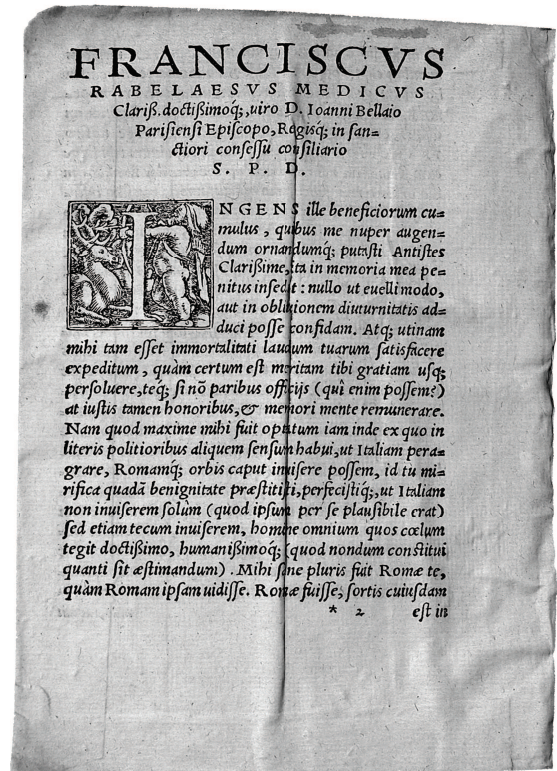 FRANCISCVS
RABELAESVS MEDICVS
Clariß. doctißimoq́;, uiro D. Ioanni Bellaio
Parisiensi Episcopo, Regisq́; in san=
ctiori consessu consiliario
S. P. D.
INGENS ille beneficiorum cu=
mulus, quibus me nuper augen=
dum ornandumq́; putasti Antistes
Clarißime, ita in memoria mea pe=
nitus insedit: nullo ut euelli modo,
aut in obliuionem diuturnitatis ad=
duci posse confidam. Atq; utinam
mihi tam esset immortalitati laudum tuarum satisfacere
expeditum, quàm certum est meritam tibi gratiam usq;
persoluere, teq́; si nō paribus officijs (quî enim possem?)
at iustis tamen honoribus, & memori mente remunerare.
Nam quod maxime mihi fuit optatum iam inde ex quo in
literis politioribus aliquem sensum habui, ut Italiam pera=
grare, Romamq́; orbis caput inuisere possem, id tu mi=
rifica quadā benignitate præstitisti, perfecistiq́;, ut Italiam
non inuiserem solùm (quod ipsum per se plausibile erat)
sed etiam tecum inuiserem, homine omnium quos cœlum
tegit doctißimo, humanißimoq́; (quod nondum constitui
quanti sit æstimandum). Mihi sane pluris fuit Romæ te,
quàm Romam ipsam uidisse. Romæ fuisse, sortis cuiusdam
* 2 est in